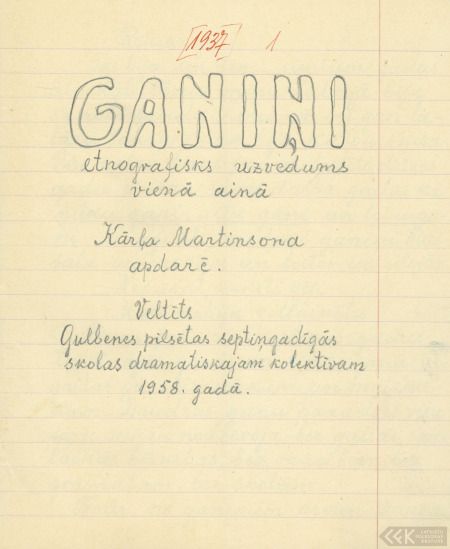 [1937] 1
GANIŅI
etnografisks uzvedums
vienā ainā
Kārļa Martinsona
apdarē.
Veltīts
Gulbenes pilsētas septiņgadīgās
skolas dramatiskajam kolektīvam
1958. gadā.
LATVIEŠU
FOLKLORAS
KRĀTUVE